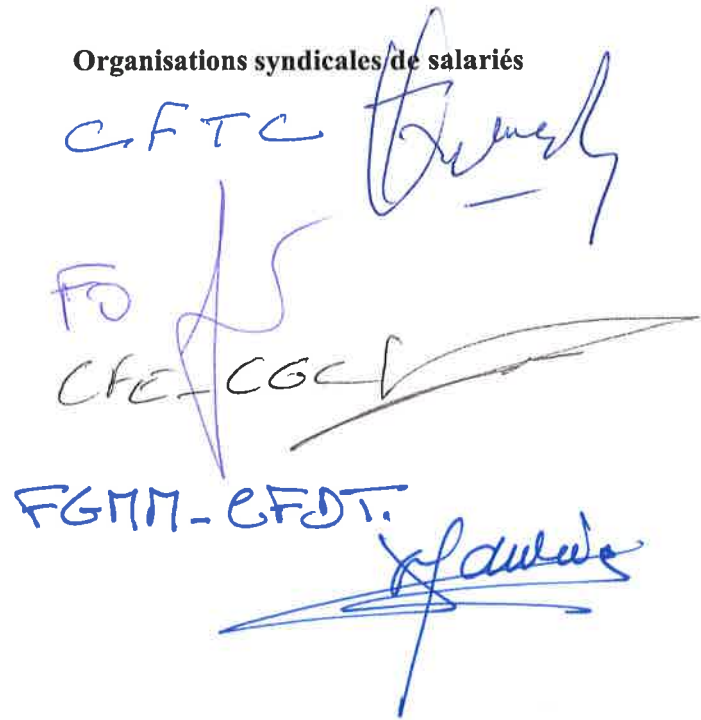 Organisations syndicales de salariés
CFTC
FO
CFE-CGC
FGMM-CFDT.